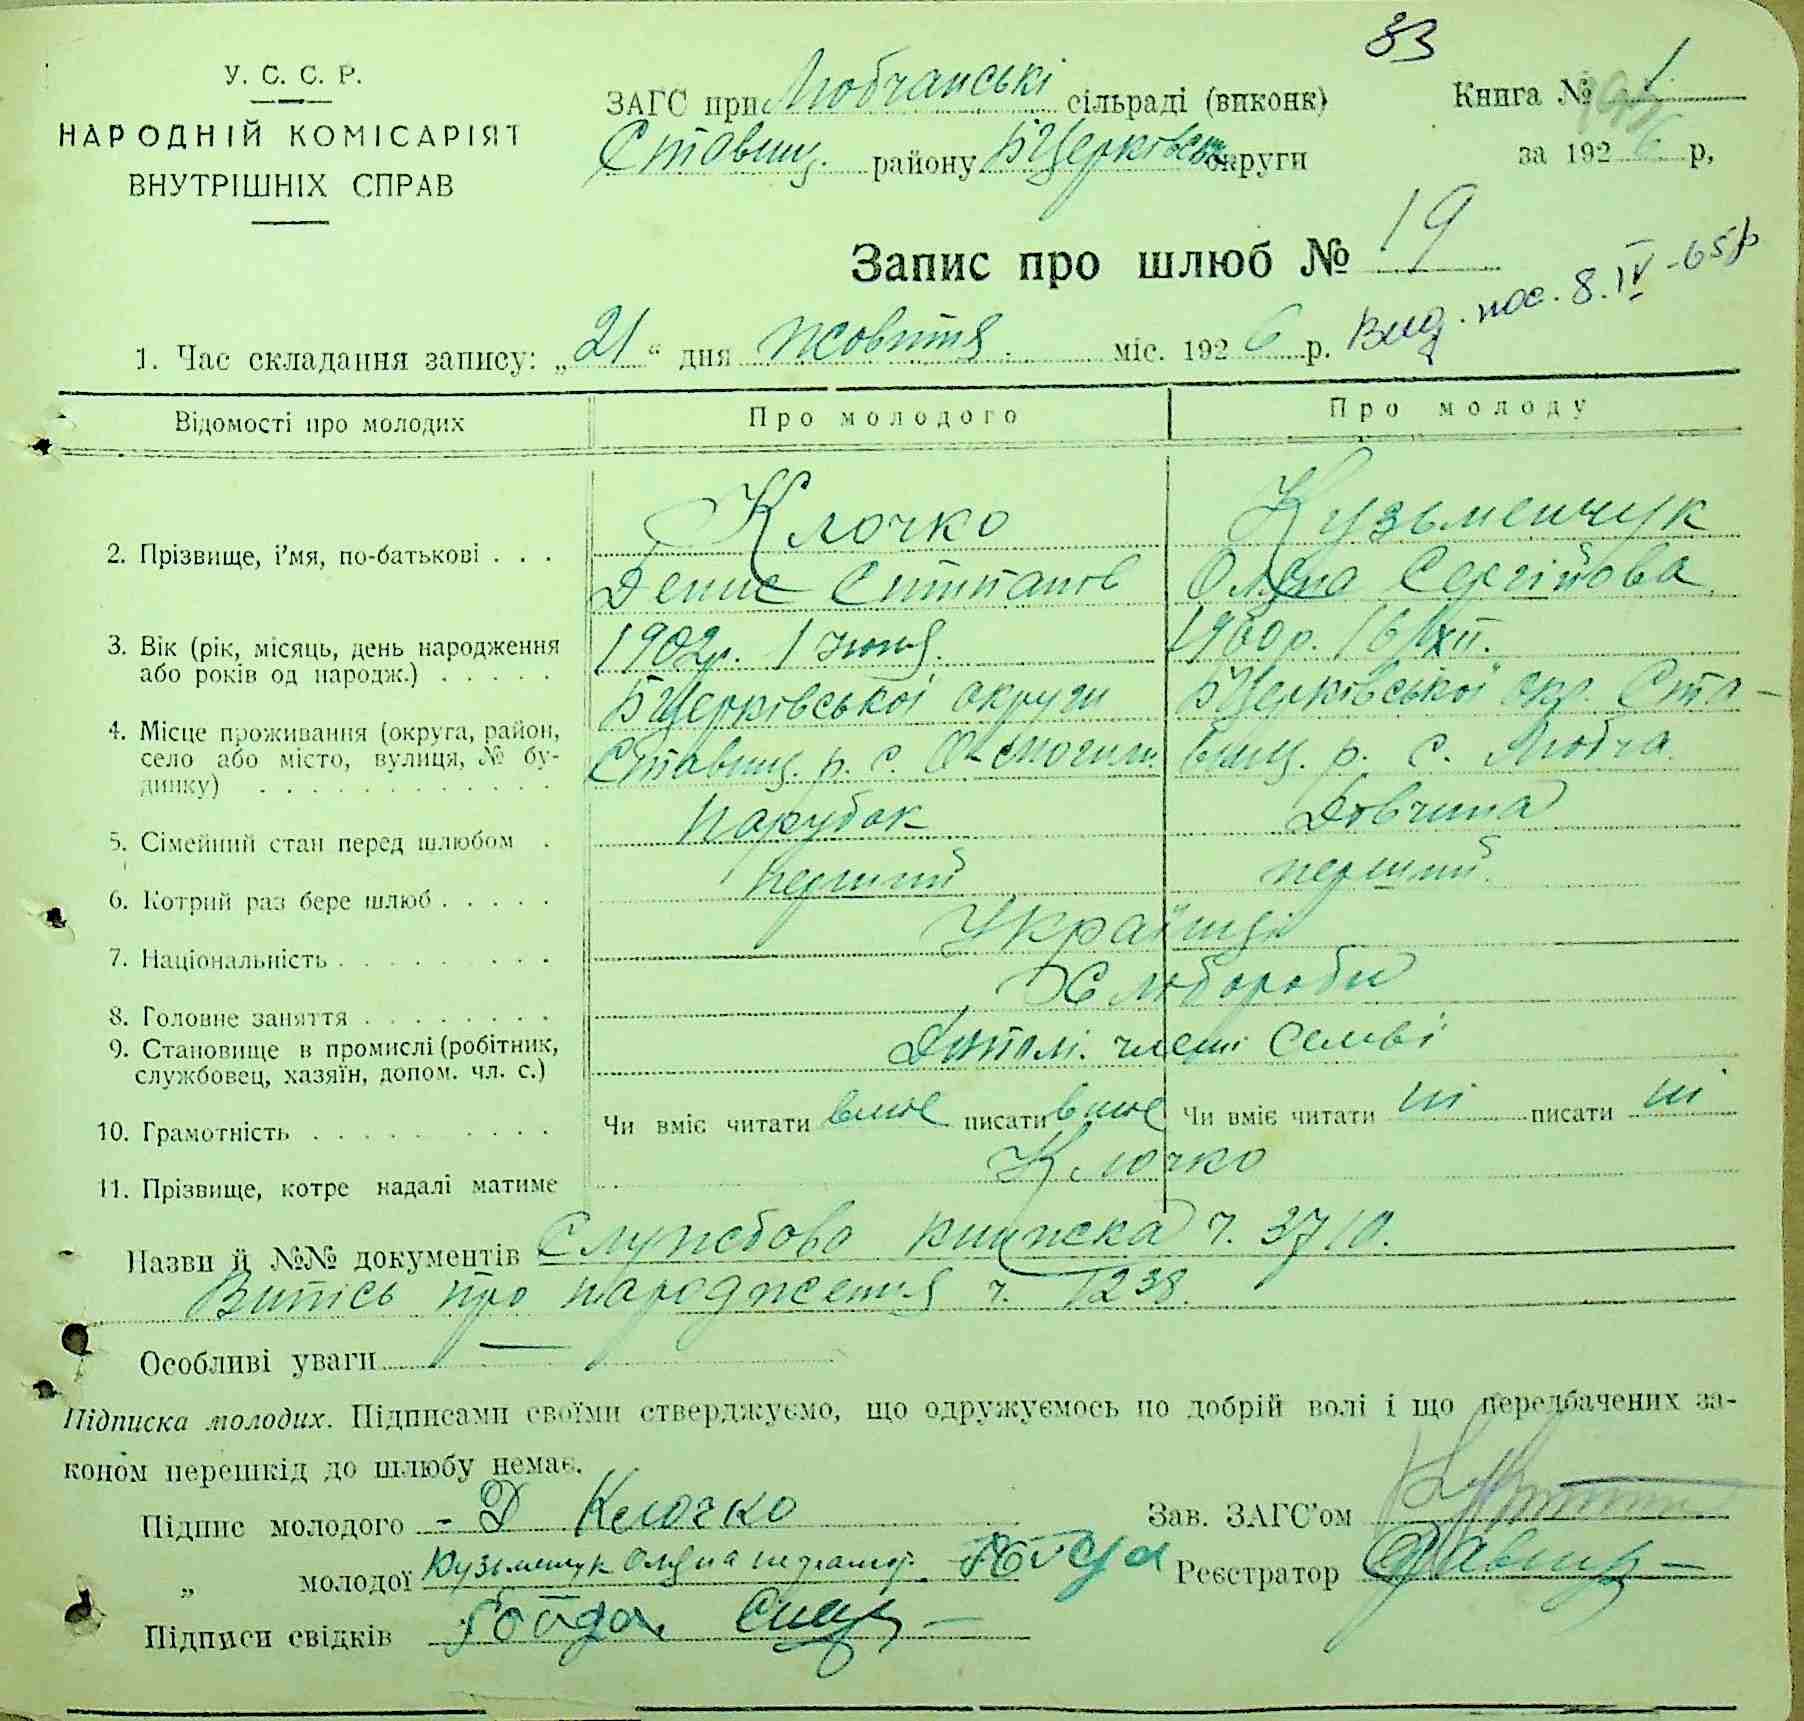 33
У. С. С. Р.
НАРОДНІЙ КОМІСАРІЯТ
ВНУТРІШНІХ СПРАВ
ЗАГС при Любчанські сільраді (виконк)
Ставищ. району БЦерківськ. округи
Книга № 1
за 1926 р,
Запис про шлюб № 19
Вид. пос. 8.IV-65р
1. Час складання запису: „21“ дня Жовтня міс. 1926 р.
Відомості про молодих Про молодого Про молоду
2. Прізвище, і’мя, по-батькові . . . Клочко Кузьменчук
Денис Степанов Олена Сергійова
3. Вік (рік, місяць, день народження 1902р. 1 Июня. 1900р. 16/XII.
або років од народж.) . . . . .
БЦерківської округи БЦерківської окр. Ста-
4. Місце проживання (округа, район,
село або місто, вулиця, № бу- Ставищ. р. с. вищ. р. с. Любча
динку) . . . . . . . . . . . .
5. Сімейний стан перед шлюбом . Парубок Дівчина
6. Котрий раз бере шлюб . . . . . перший перший
7. Національність . . . . . . . . . Українці
8. Головне заняття . . . . . . . . Хлібороби
9. Становище в промислі (робітник, Допом. члени семьї
службовец, хазяїн, допом. чл. с.)
10. Грамотність . . . . . . . . . . Чи вміє читати вміє писати вміє Чи вміє читати ні писати ні
11. Прізвище, котре надалі матиме Клочко
Назви й №№ документів Службова книжка ч. 3710.
Витісь про народження ч. 1238.
Особливі уваги —
Підписка молодих. Підписами своїми стверджуємо, що одружуємось по добрій волі і що передбачених за-
коном перешкід до шлюбу немає.
Підпис молодого - Д Клочко Зав. ЗАГС’ом
„ молодої Кузьменчук Олена неграмот. Гойда Реєстратор
Підписи свідків Гойда